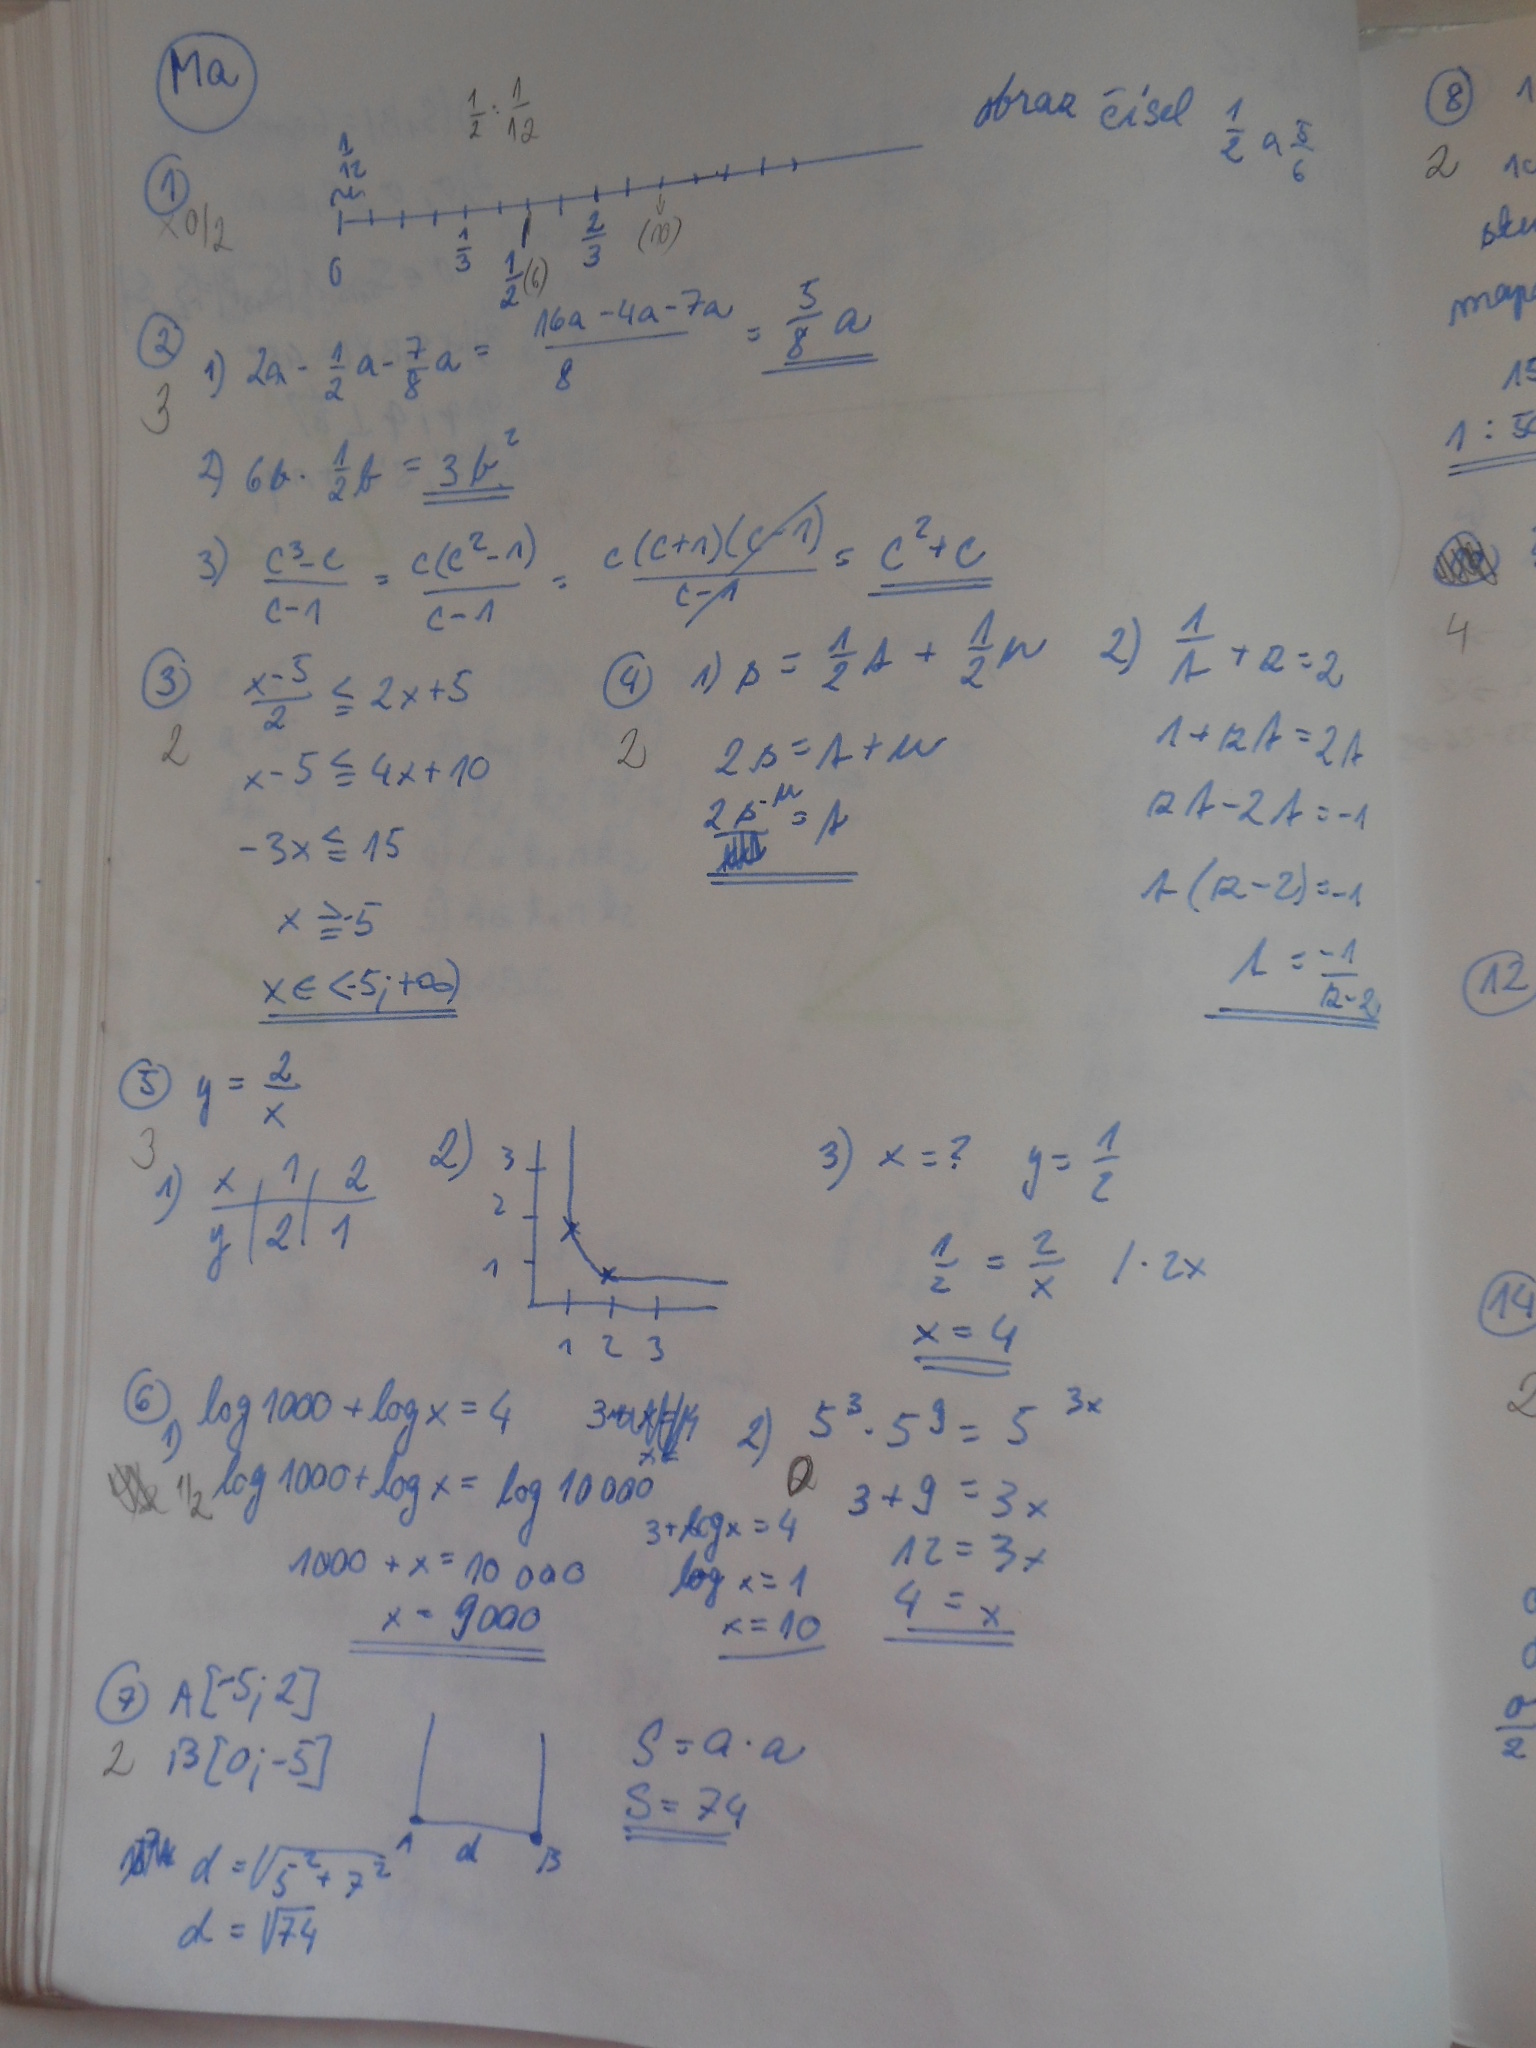 Ma
1/2 : 1/12
obraz čísel 1/2 a 5/6
① 1/12
0/2
0 1/3 1/2 (6) 2/3 (10)
② 1) 2a - 1/2 a - 7/8 a = (16a - 4a - 7a)/8 = 5/8 a
3
2) 6b · 1/2 b = 3b²
3) (c³-c)/(c-1) = c(c²-1)/(c-1) = c(c+1)(c-1)/(c-1) = c²+c
③ (x-5)/2 ≦ 2x+5
2
x-5 ≦ 4x+10
-3x ≦ 15
x ≧ -5
x ∈ <-5; +∞)
④ 1) s = 1/2 t + 1/2 u
2
2s = t + u
2s - u = t
2) 1/t + r = 2
1 + rt = 2t
rt - 2t = -1
t(r-2) = -1
t = -1/(r-2)
⑤ y = 2/x
3
1) x 1 2
y 2 1
2) 3
2
1
1 2 3
3) x = ? y = 1/2
1/2 = 2/x / · 2x
x = 4
⑥ 1) log 1000 + log x = 4
1/2
log 1000 + log x = log 10 000
1000 + x = 10 000
x = 9000
3 + log x = 4
log x = 1
x = 10
2) 5³ · 5⁹ = 5³ˣ
3 + 9 = 3x
12 = 3x
4 = x
⑦ A[-5; 2]
2 B[0; -5]
A d B
d = √(5² + 7²)
d = √74
S = a · a
S = 74
⑧
2
1:
4
⑫
⑭
2